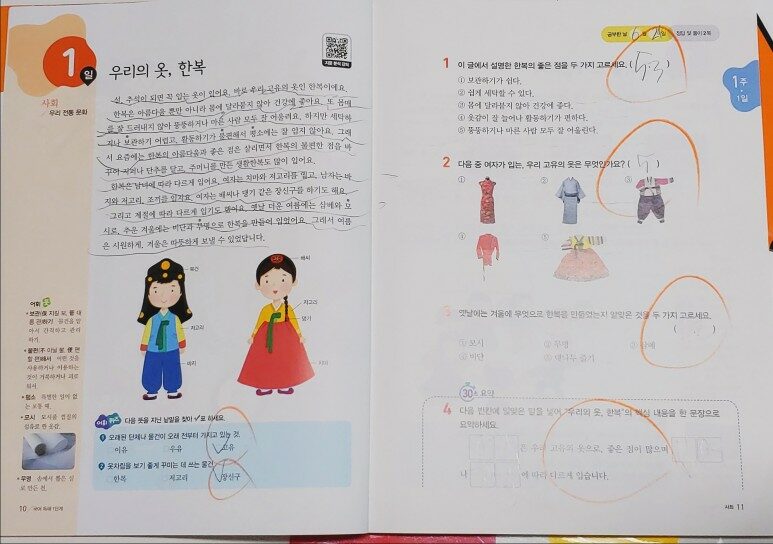 1일
사회
우리 전통 문화
우리의 옷, 한복
지문 분석 강의
설, 추석이 되면 꼭 입는 옷이 있어요. 바로 우리 고유의 옷인 한복이에요.
한복은 아름다울 뿐만 아니라 몸에 달라붙지 않아 건강에 좋아요. 또 몸매
를 잘 드러내지 않아 뚱뚱하거나 마른 사람 모두 잘 어울려요. 하지만 세탁하
거나 보관하기 어렵고, 활동하기가 불편해서 평소에는 잘 입지 않아요. 그래
서 요즘에는 한복의 아름다움과 좋은 점은 살리면서 한복의 불편한 점을 바
꾸어 지퍼나 단추를 달고, 주머니를 만든 생활한복도 많이 있어요.
한복은 남녀에 따라 다르게 입어요. 여자는 치마와 저고리를 입고, 남자는 바
지와 저고리, 조끼를 입지요. 여자는 배씨나 댕기 같은 장신구를 하기도 해요.
그리고 계절에 따라 다르게 입기도 했어요. 옛날 더운 여름에는 삼베와 모
시로, 추운 겨울에는 비단과 무명으로 한복을 만들어 입었어요. 그래서 여름
은 시원하게, 겨울은 따뜻하게 보낼 수 있었답니다.
배씨
저고리
저고리
댕기
바지
치마
어휘
보관
불편
평소 특별한 일이 없
는 보통 때.
모시
무명 솜에서 뽑은 실
로 만든 천.
어휘 퀴즈 다음 뜻을 지닌 낱말을 찾아 ✓표 하세요.
1 오래된 단체나 물건이 오래 전부터 가지고 있는 것.
이유 우유 고유
2 옷차림을 보기 좋게 꾸미는 데 쓰는 물건.
한복 저고리 장신구
10 국어 독해 1단계
공부한 날 6월 일 정답 및 풀이 2쪽
1주
1일
1 이 글에서 설명한 한복의 좋은 점을 두 가지 고르세요. (
① 보관하기가 쉽다.
② 쉽게 세탁할 수 있다.
③ 몸에 달라붙지 않아 건강에 좋다.
④ 옷감이 잘 늘어나 활동하기가 편하다.
⑤ 뚱뚱하거나 마른 사람 모두 잘 어울린다.
2 다음 중 여자가 입는, 우리 고유의 옷은 무엇인가요? (
① ② ③
④ ⑤
3 옛날에는 겨울에 무엇으로 한복을 만들었는지 알맞은 것을 두 가지 고르세요.
( )
① 모시 ② 무명 ③ 삼베
④ 비단 ⑤ 대나무 줄기
30초 요약
4 다음 빈칸에 알맞은 말을 넣어 '우리의 옷, 한복'의 핵심 내용을 한 문장으로
요약하세요.
은 우리 고유의 옷으로, 좋은 점이 많으며
나 에 따라 다르게 입습니다.
사회 11